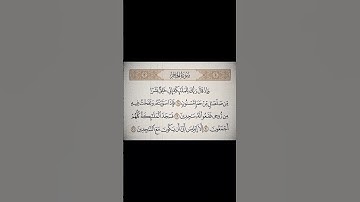 وَإِذْ قَالَ رَبُّكَ لِلْمَلَٰٓئِكَةِ إِنِّى خَٰلِقٌۢ بَشَرًا
مِّن صَلْصَٰلٍ مِّنْ حَمَإٍ مَّسْنُونٍ ۝ فَإِذَا سَوَّيْتُهُۥ وَنَفَخْتُ فِيهِ
مِن رُّوحِى فَقَعُوا۟ لَهُۥ سَٰجِدِينَ ۝ فَسَجَدَ ٱلْمَلَٰٓئِكَةُ كُلُّهُمْ
أَجْمَعُونَ ۝ إِلَّآ إِبْلِيسَ أَبَىٰٓ أَن يَكُونَ مَعَ ٱلسَّٰجِدِينَ ۝